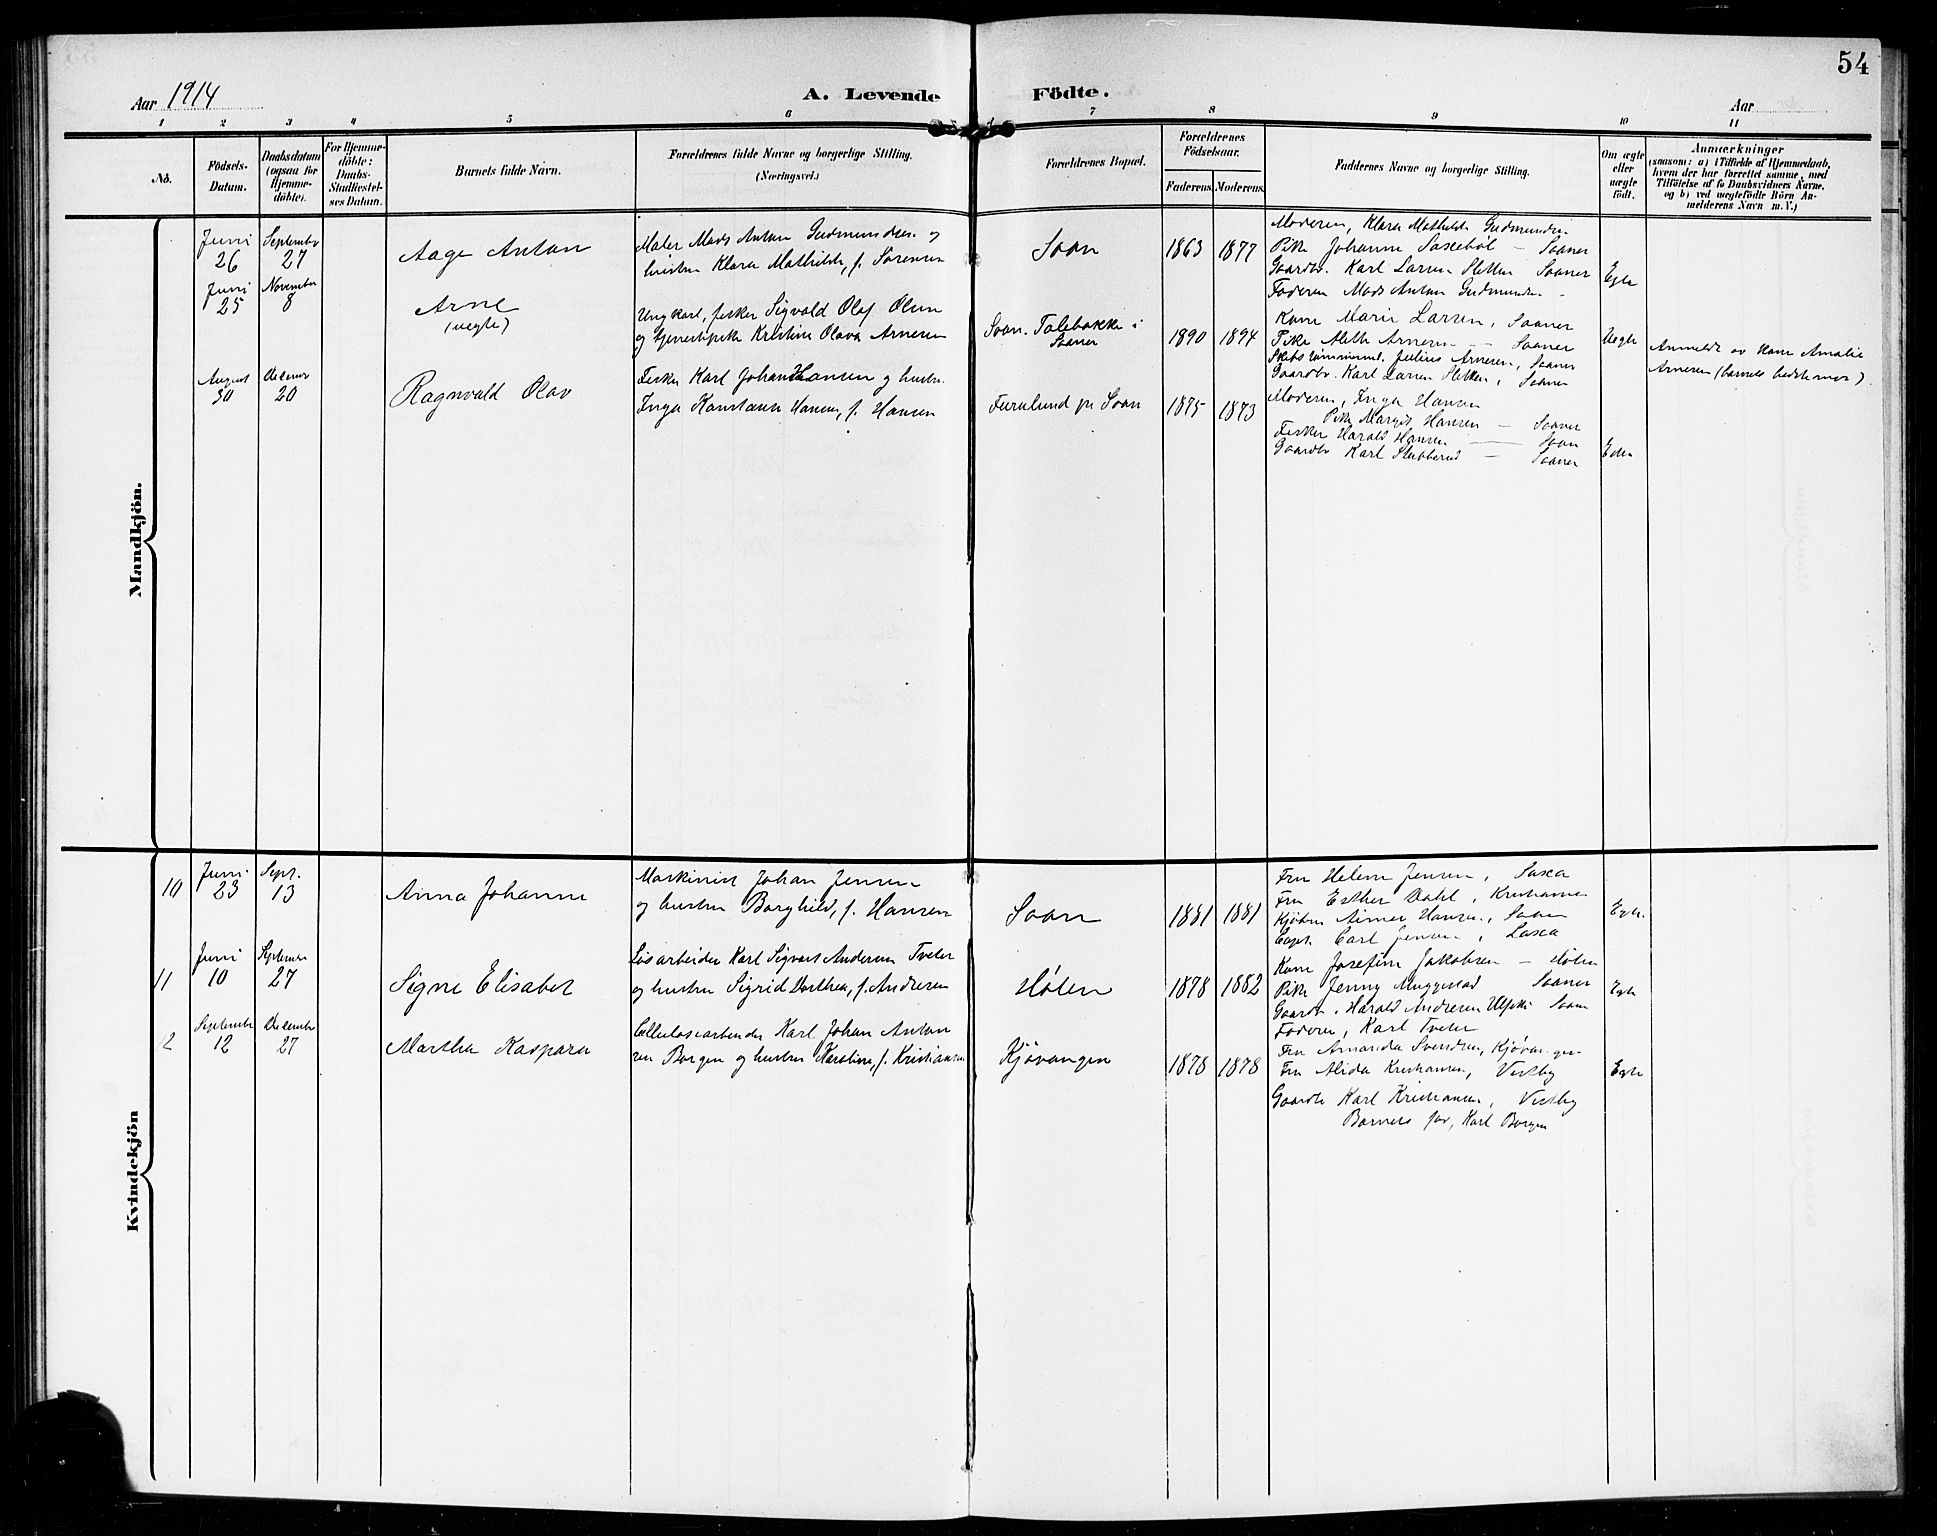 54
Aar 1914
A. Levende Födte.
Aar
1 2 3 4 5 6 7 8 9 10 11
No.
Födsels-
Datum.
Daabsdatum
(ogsaa for
Hjemme-
döbte).
For Hjemme-
döbte:
Daabs-
Stadfæstel-
ses Datum.
Barnets fulde Navn.
Forældrenes fulde Navne og borgerlige Stilling.
(Næringsvei.)
Forældrenes Bopæl.
Forældrenes
Födselsaar.
Faderens. Moderens.
Faddernes Navne og borgerlige Stilling.
Om ægte
eller
uægte
födt.
Anmærkninger
(saasom: a) i Tilfælde af Hjemmedaab,
hvem der har forrettet samme, med
Tilföielse af to Daabsvidners Navne,
og b) ved uægtefödte Börn An-
melderens Navn m. V.)
Mandkjön.
Juni
26
September
27
Aage Anton
Maler Mads Anton Gudmundsen og
hustru Klara Mathilde, f. Sørensen
Soon
1863 1877
Moderen, Klara Mathilde Gudmundsen
Pike Johanne Saxebøl - Saaner
Gaardbr. Karl Larsen Sletten Saaner
Faderen Mads Anton Gudmundsen -
Egte
Juni
25
November
8
Arne
(uegte)
Ungkarl, fisker Sigvald Olaf Olsen
og tjenestepike Kristine Olava Arnesen
Soon. Talebakke i
Saaner
1890 1894
Kone Marie Larsen, Saaner
Pike Aleth Arnesen - Saaner
Skibstømmermd. Julius Arnesen, Saaner
Gaardbr. Karl Larsen Sletten, Saaner
Uegte
Anmeldt av Kone Amalie
Arnesen (barnets bedstemor).
August
30
Desember
20
Ragnvald Olav
Fisker Karl Johan Hansen og hustru
Inga Konstanse Hansen, f. Hansen
Furulund pr Soon
1875 1873
Moderen, Inga Hansen
Pike Margit Hansen - Saaner
Fisker Harald Hansen - Soon
Gaardbr Karl Stubberud - Saaner
Ekte
Kvindekjön
10
Juni
23
Sept.
13
Anna Johanne
Maskinist Johan Jensen
og hustru Borghild, f. Hansen
Soon
1881 1881
Fru Helene Jensen,
Fru Esther Dahl, Kristiania
Hansen, Soon
Capt. Carl Jensen,
Egte.
11
Juni
10
September
27
Signe Elisabet
Løsarbeider Karl Sigvart Andersen Tveter
og hustru Sigrid Dorthea, f. Andersen
Hølen
1878 1882
Kone Josefine Jakobsen - Hølen
Pike Jenny Muggestad Saaner
Gaardbr. Harald Andersen
Faderen, Karl Tveter
Egte
2
September
12
Desember
27
Martha Kaspara
Cellulosearbeider Karl Johan Anton
sen Borgen og hustru Karoline, f. Kristiansen
Kjøvangen
1878 1878
Fru Amanda Svendsen, Kjøvangen
Fru Alida Kristiansen, Vestby
Gaardb Karl Kristiansen, Vestby
Barnets far, Karl Borgen
Egte